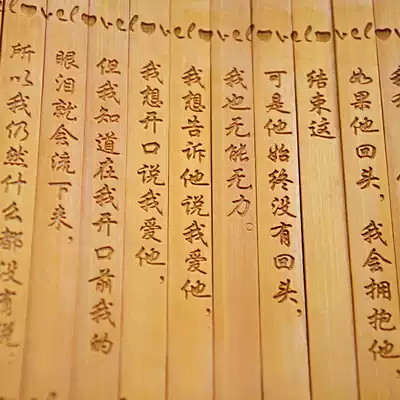 l♥ve l♥ve l♥ve l♥ve l♥ve
如果他回头，我会拥抱他，
结束这
可是他始终没有回头，
我也无能无力。
我想告诉他说我爱他，
我想开口说我爱他，
但我知道在我开口前我的
眼泪就会流下来，
所以我仍然什么都没有说